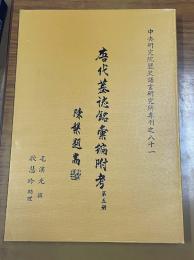 中央研究院歷史語言研究所專刊之八十一
唐代墓誌銘彙編附考
第五冊
陳槃題耑
毛漢光 撰
耿慧玲 助理